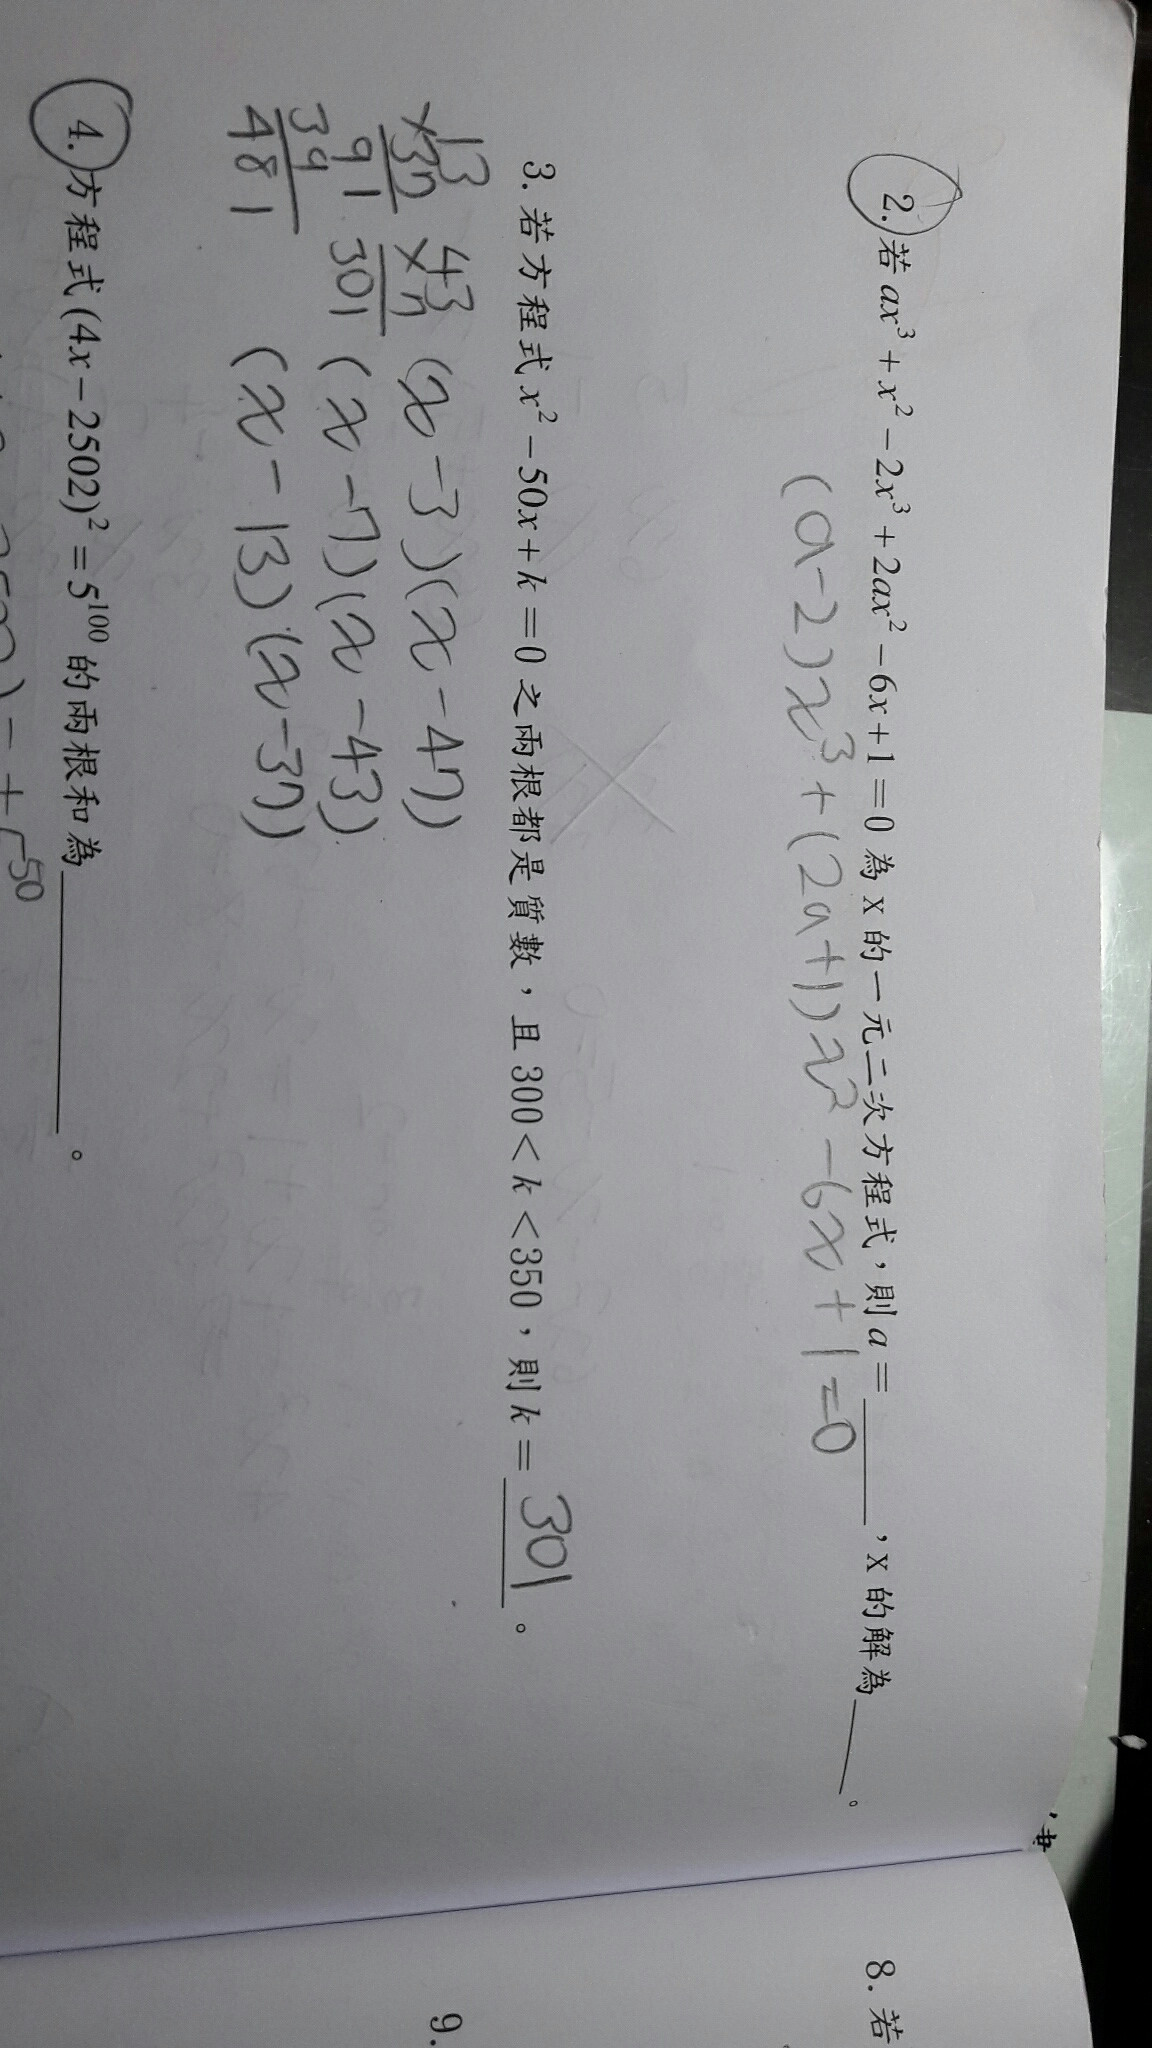 2. 若 ax³ + x² − 2x³ + 2ax² − 6x + 1 = 0 為 x 的一元二次方程式，則 a = ______，x 的解為______。
(a-2)x³ + (2a+1)x² - 6x + 1 = 0
3. 若方程式 x² − 50x + k = 0 之兩根都是質數，且 300 < k < 350，則 k = 301。
13 43 (x-3)(x-47)
×37 ×7
91 301 (x-7)(x-43)
39
481 (x-13)(x-37)
4. 方程式 (4x − 2502)² = 5¹⁰⁰ 的兩根和為______。
8. 若
9.